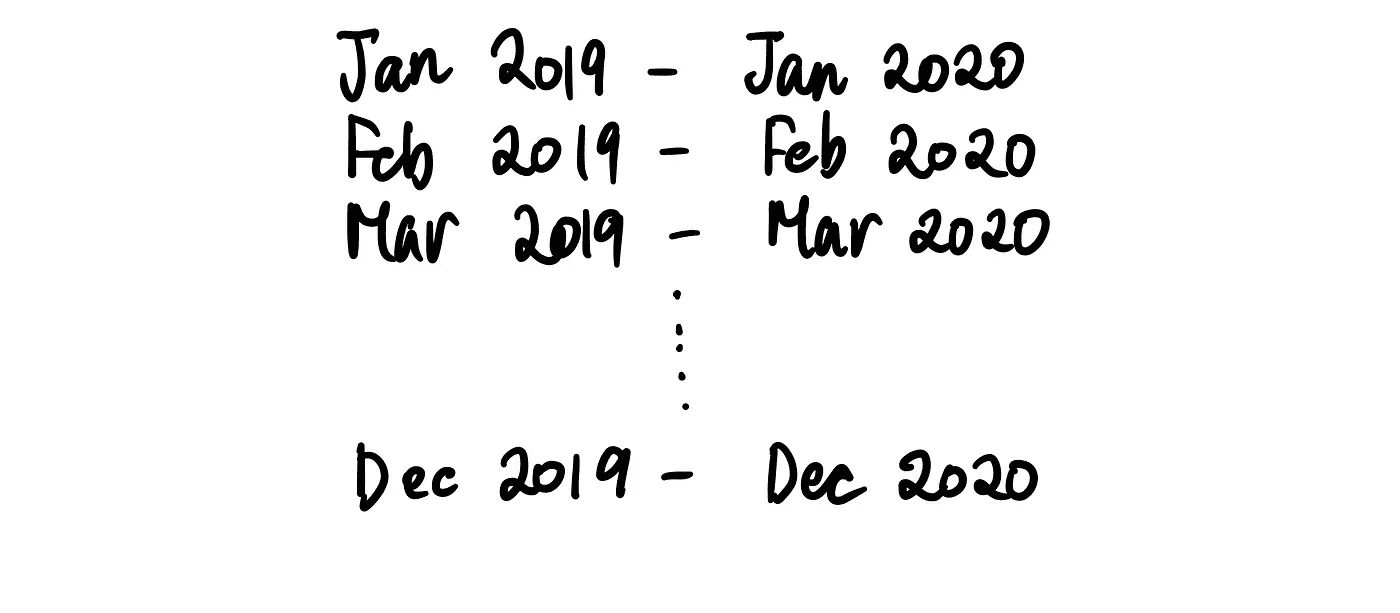 Jan 2019 - Jan 2020
Feb 2019 - Feb 2020
Mar 2019 - Mar 2020
.
.
.
.
.
Dec 2019 - Dec 2020